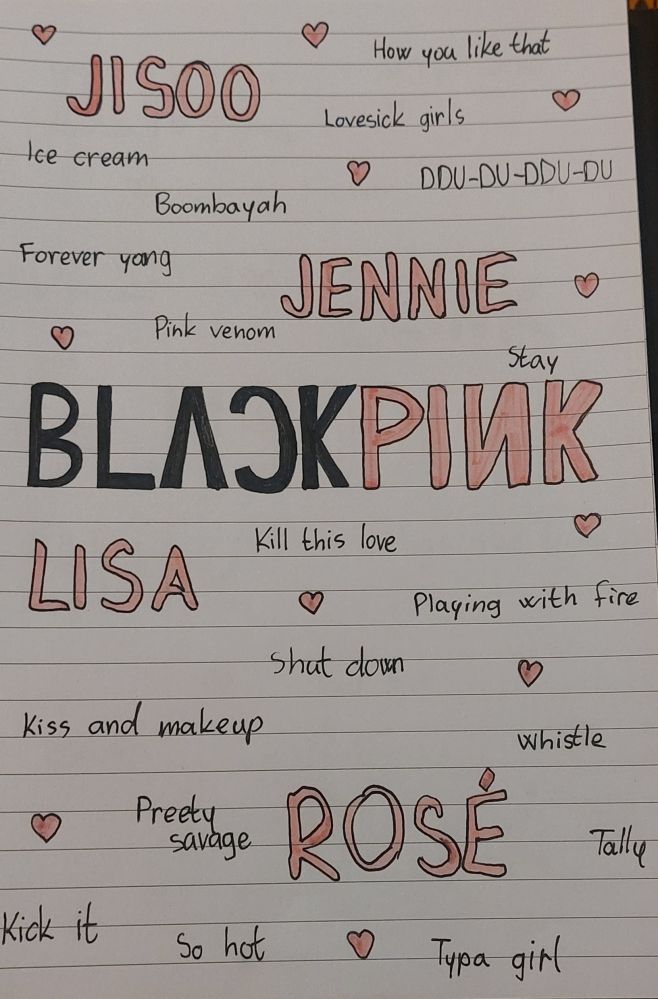 How you like that
JISOO
Lovesick girls
Ice cream
DDU-DU-DDU-DU
Boombayah
Forever yang
JENNIE
Pink venom
Stay
BLACKPINK
Kill this love
LISA
Playing with fire
Shut down
Kiss and makeup
Whistle
Preety
savage
ROSÉ
Tally
Kick it
So hot
Typa girl